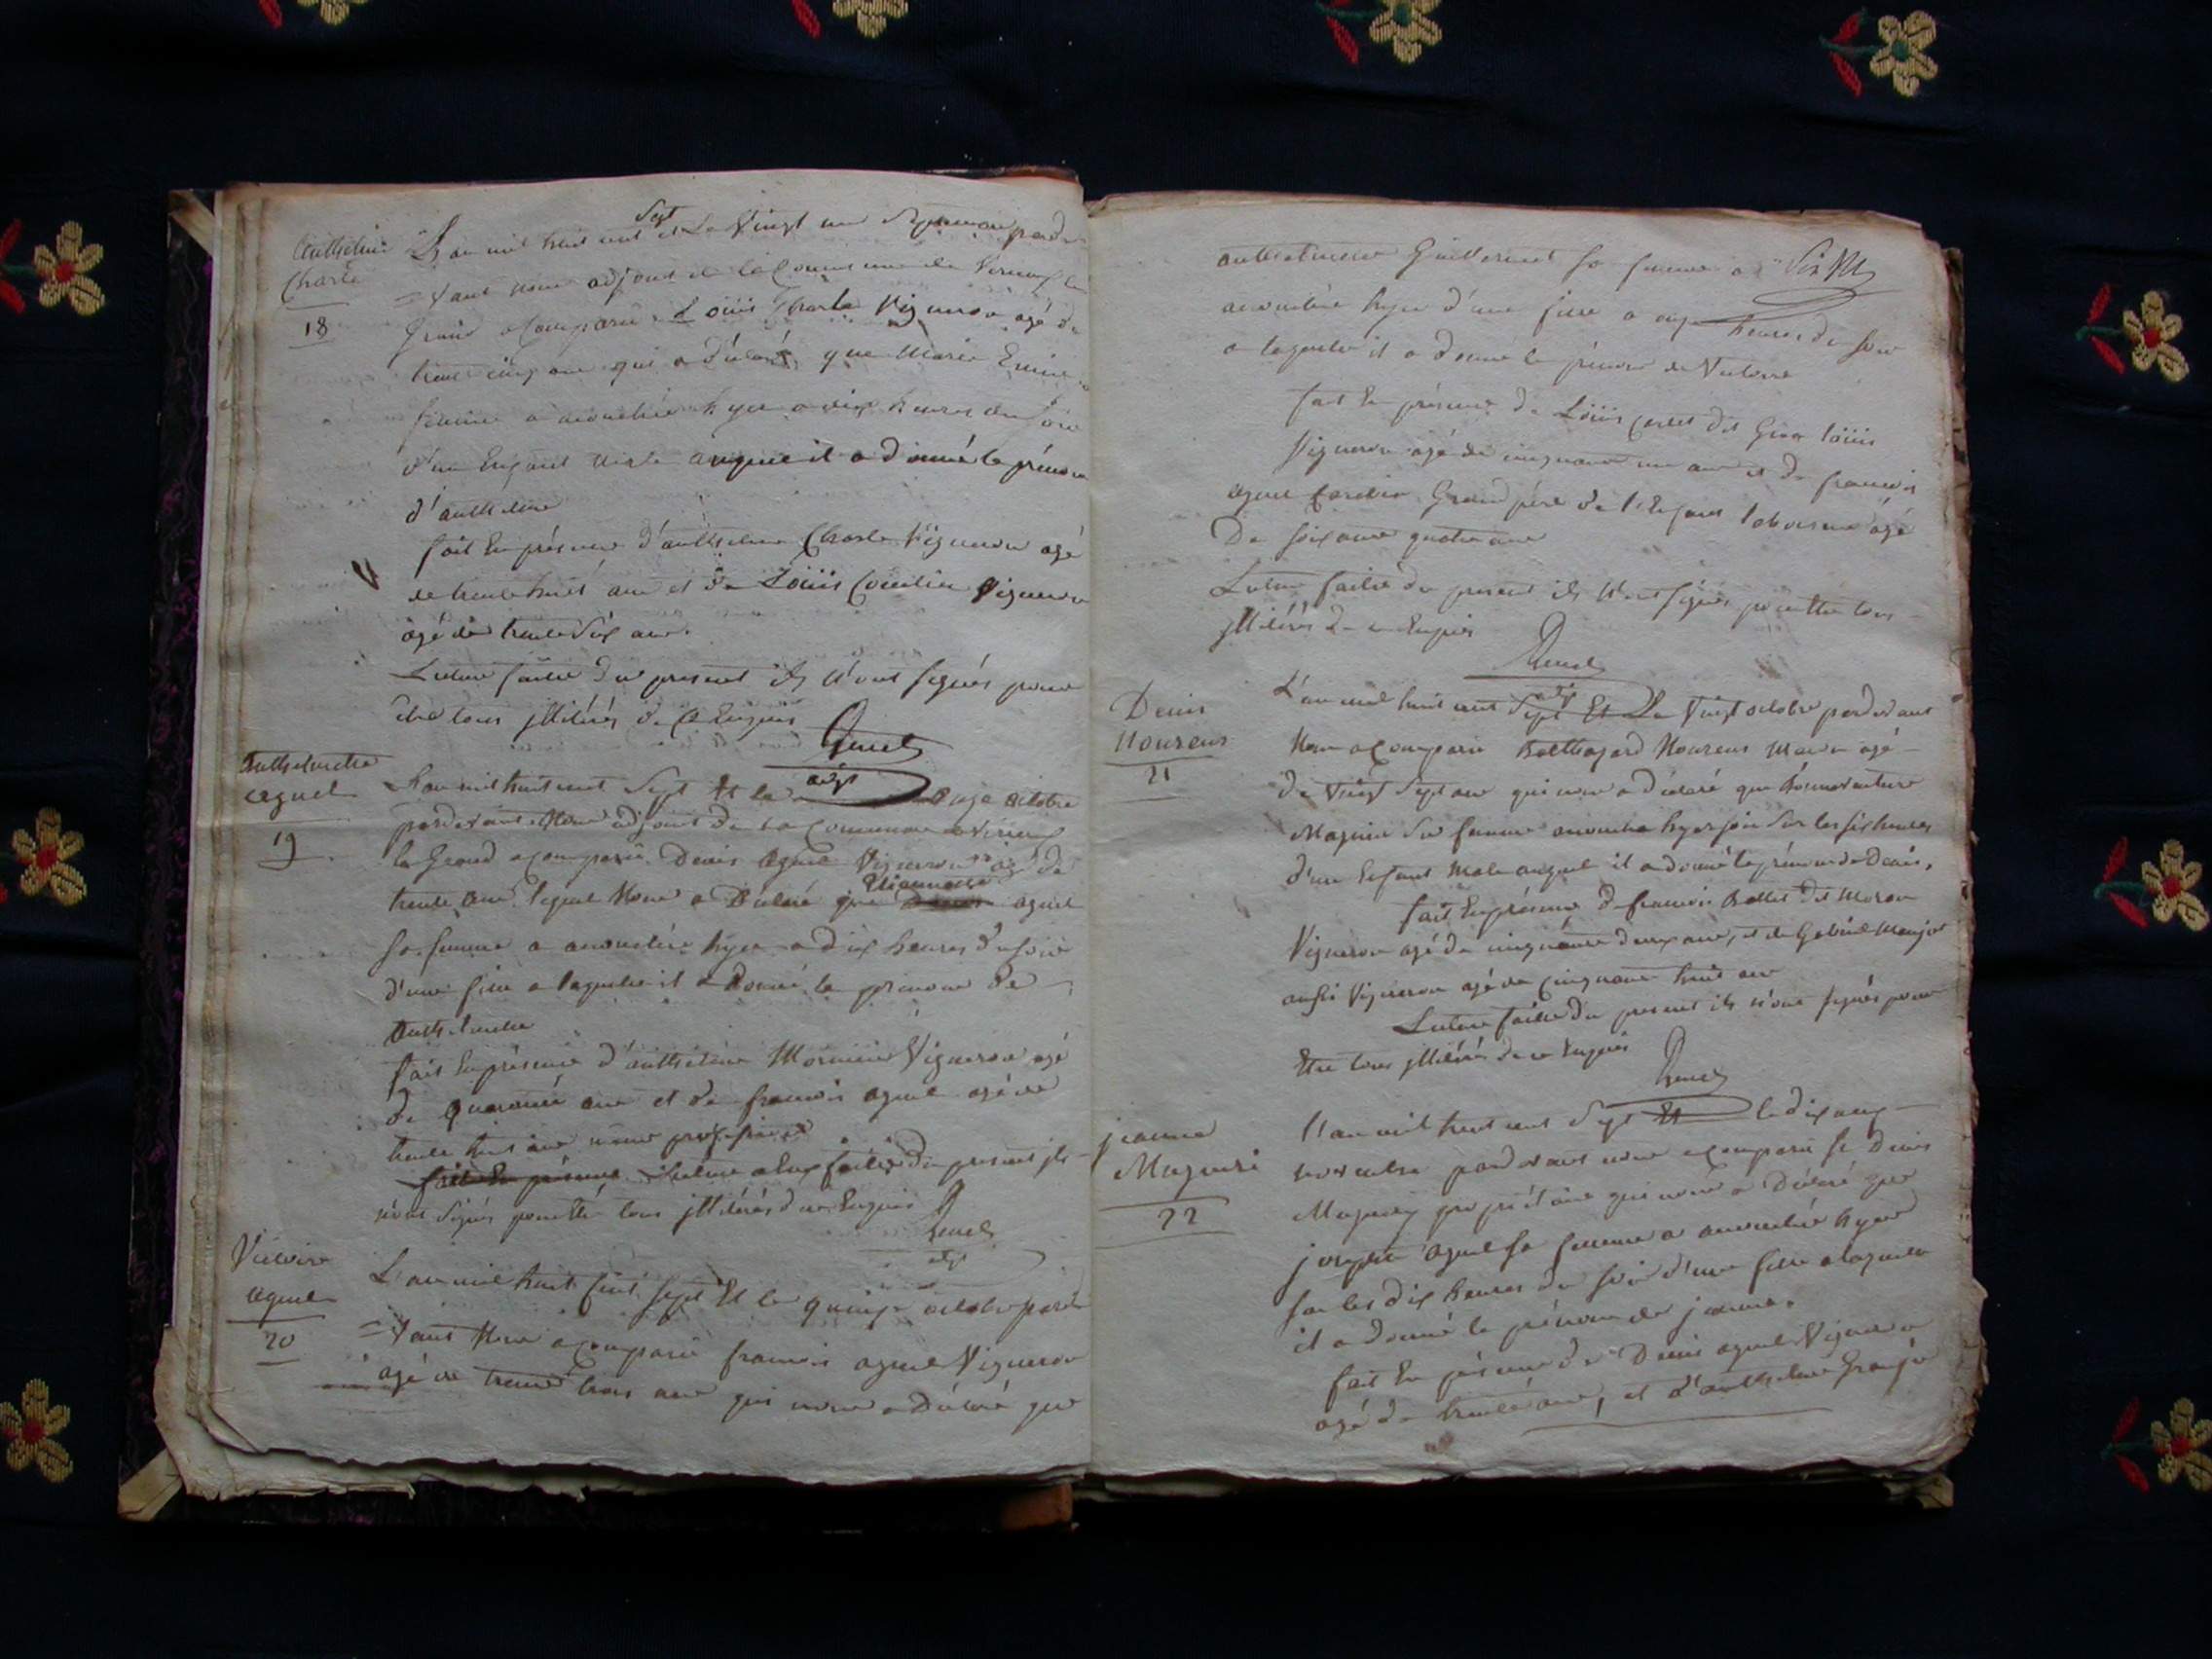 Anthelme
Charle
18
L'an mil huit cent sept et Le Vingt un pard
= Vant nous adjoint de la Commune de Virieux le
Grand a Comparu Louis Charle Vigneron agé de
trente cinq ans qui a déclaré que Marie
femme a accouchée hyer a dix heures du soir
d'un Enfant male auquel il a donné le prénom
d'anthelme
fait En présence d'anthelme Charle Vigneron agé
de trente huit ans et de Louis Vigneron
agé de trente Six ans.
Lecture faitte du present ils n'ont signés pour
être tous jllitérés de ce Enquis
adjt
Anthelmette
aguel
19
L'an mil huit cent Sept Et le onze octobre
pardevant Nous adjoint de La Commune de Virieux
le Grand a comparu Denis aguel Vigneron agé de
trente ans lequel Nous a Déclaré que aguel
sa femme a accouchée hyer a Dix heures du soir
d'une fille a laquelle il a Donné le prenom de
Anthelmette
fait En présence d'anthelme Vigneron agé
de quarante ans et de francois aguel agé de
trente huit ans même profession
fait En présence Lecture a Eux faitte du present ils
n'ont Signés pour Etre tous jllitérés de ce Enquis
adjt
Victoire
aguel
20
L'an mil huit Cent sept Et le quinze octobre parde
= Vant Nous a comparu francois aguel Vigneron
agé de trente trois ans qui nous a Déclaré que
Guillermet sa femme a
accouchée hyer d'une fille a onze heures du soir
a laquelle il a donné le prénom de Victoire
fait En présence de Louis dit Gros Louis
Vigneron agé de cinquante un ans et de francois
aguel Grand père de l'Enfant laboureur agé
De soixante quatre ans
Lecture faitte du present ils N'ont signés pour Etre tous
jllitérés de ce Enquis
Denis
21
L'an mil huit cent Sept Et Le Vingt octobre pardevant
Nous a Comparu Balthazard agé
De Vingt Sept ans qui nous a déclaré que Bonnaventure
sa femme accoucha hyer soir Sur les six heures
d'un Enfant Male auquel il a donné le prénom de Denis,
fait En présence de francois dit
Vigneron agé de cinquante deux ans, et de Gabriel
aussi Vigneron agé de Cinquante huit ans
Lecture faitte du present ils n'ont signés pour
Etre tous jllitérés de ce Enquis
jeanne
22
L'an mil huit cent Sept Et le dix
novembre pardevant nous a comparu Sr Denis
propriétaire qui nous a Déclaré que
josephte aguel sa femme a accouchée hyer
sur les dix heures du soir d'une fille a laquelle
il a donné le prénom de jeanne.
fait En présence de Denis aguel Vigneron
agé de trente ans, et d'anthelme